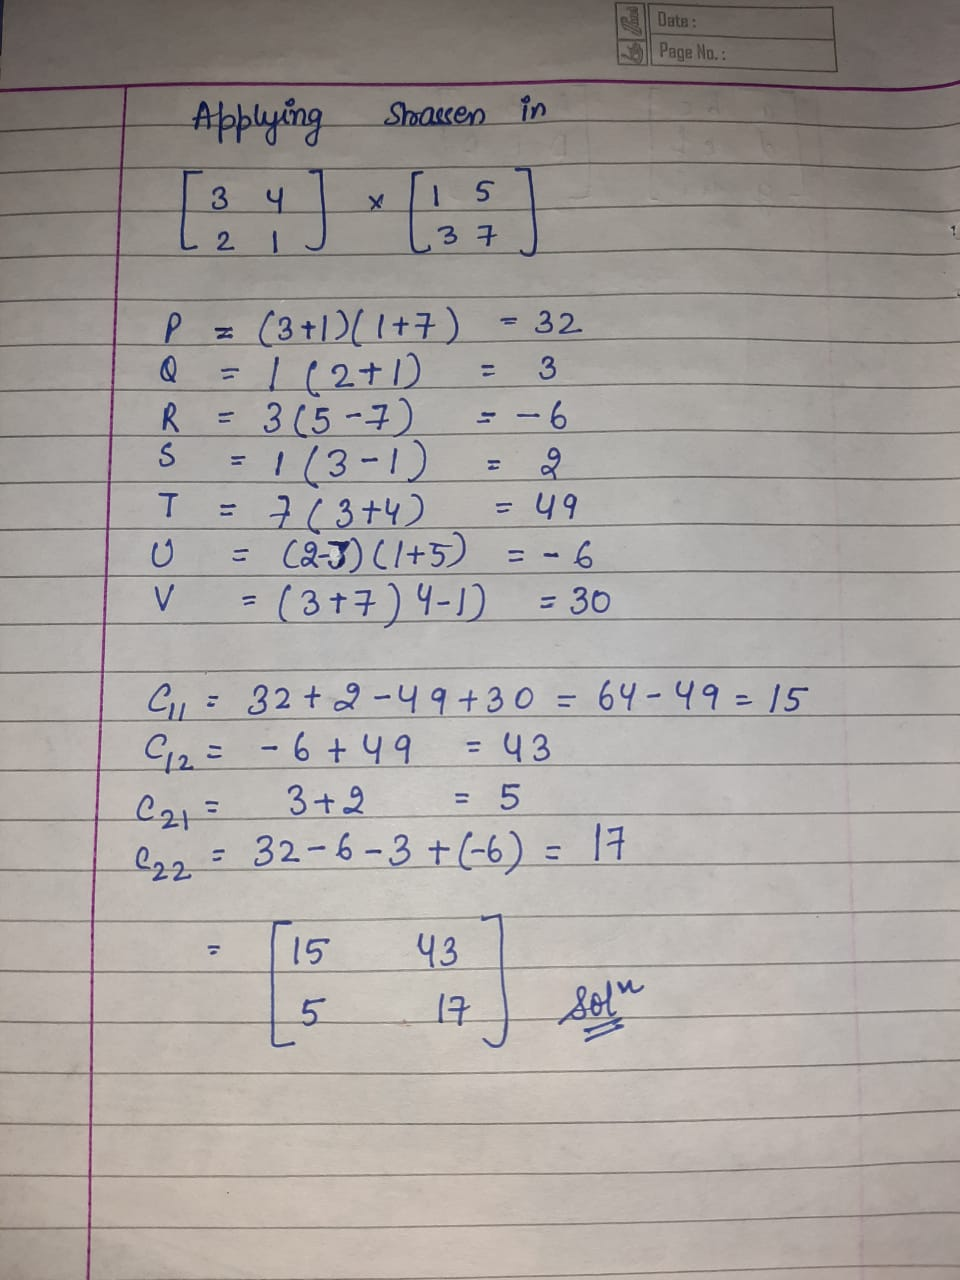 Date :
Page No. :
Applying Strassen in
[3 4
2 1] × [1 5
3 7]
P = (3+1)(1+7) = 32
Q = 1(2+1) = 3
R = 3(5-7) = -6
S = 1(3-1) = 2
T = 7(3+4) = 49
U = (2-3)(1+5) = -6
V = (3+7)4-1) = 30
C11 = 32+2-49+30 = 64-49 = 15
C12 = -6+49 = 43
C21 = 3+2 = 5
C22 = 32-6-3+(-6) = 17
= [15 43
5 17] Solⁿ